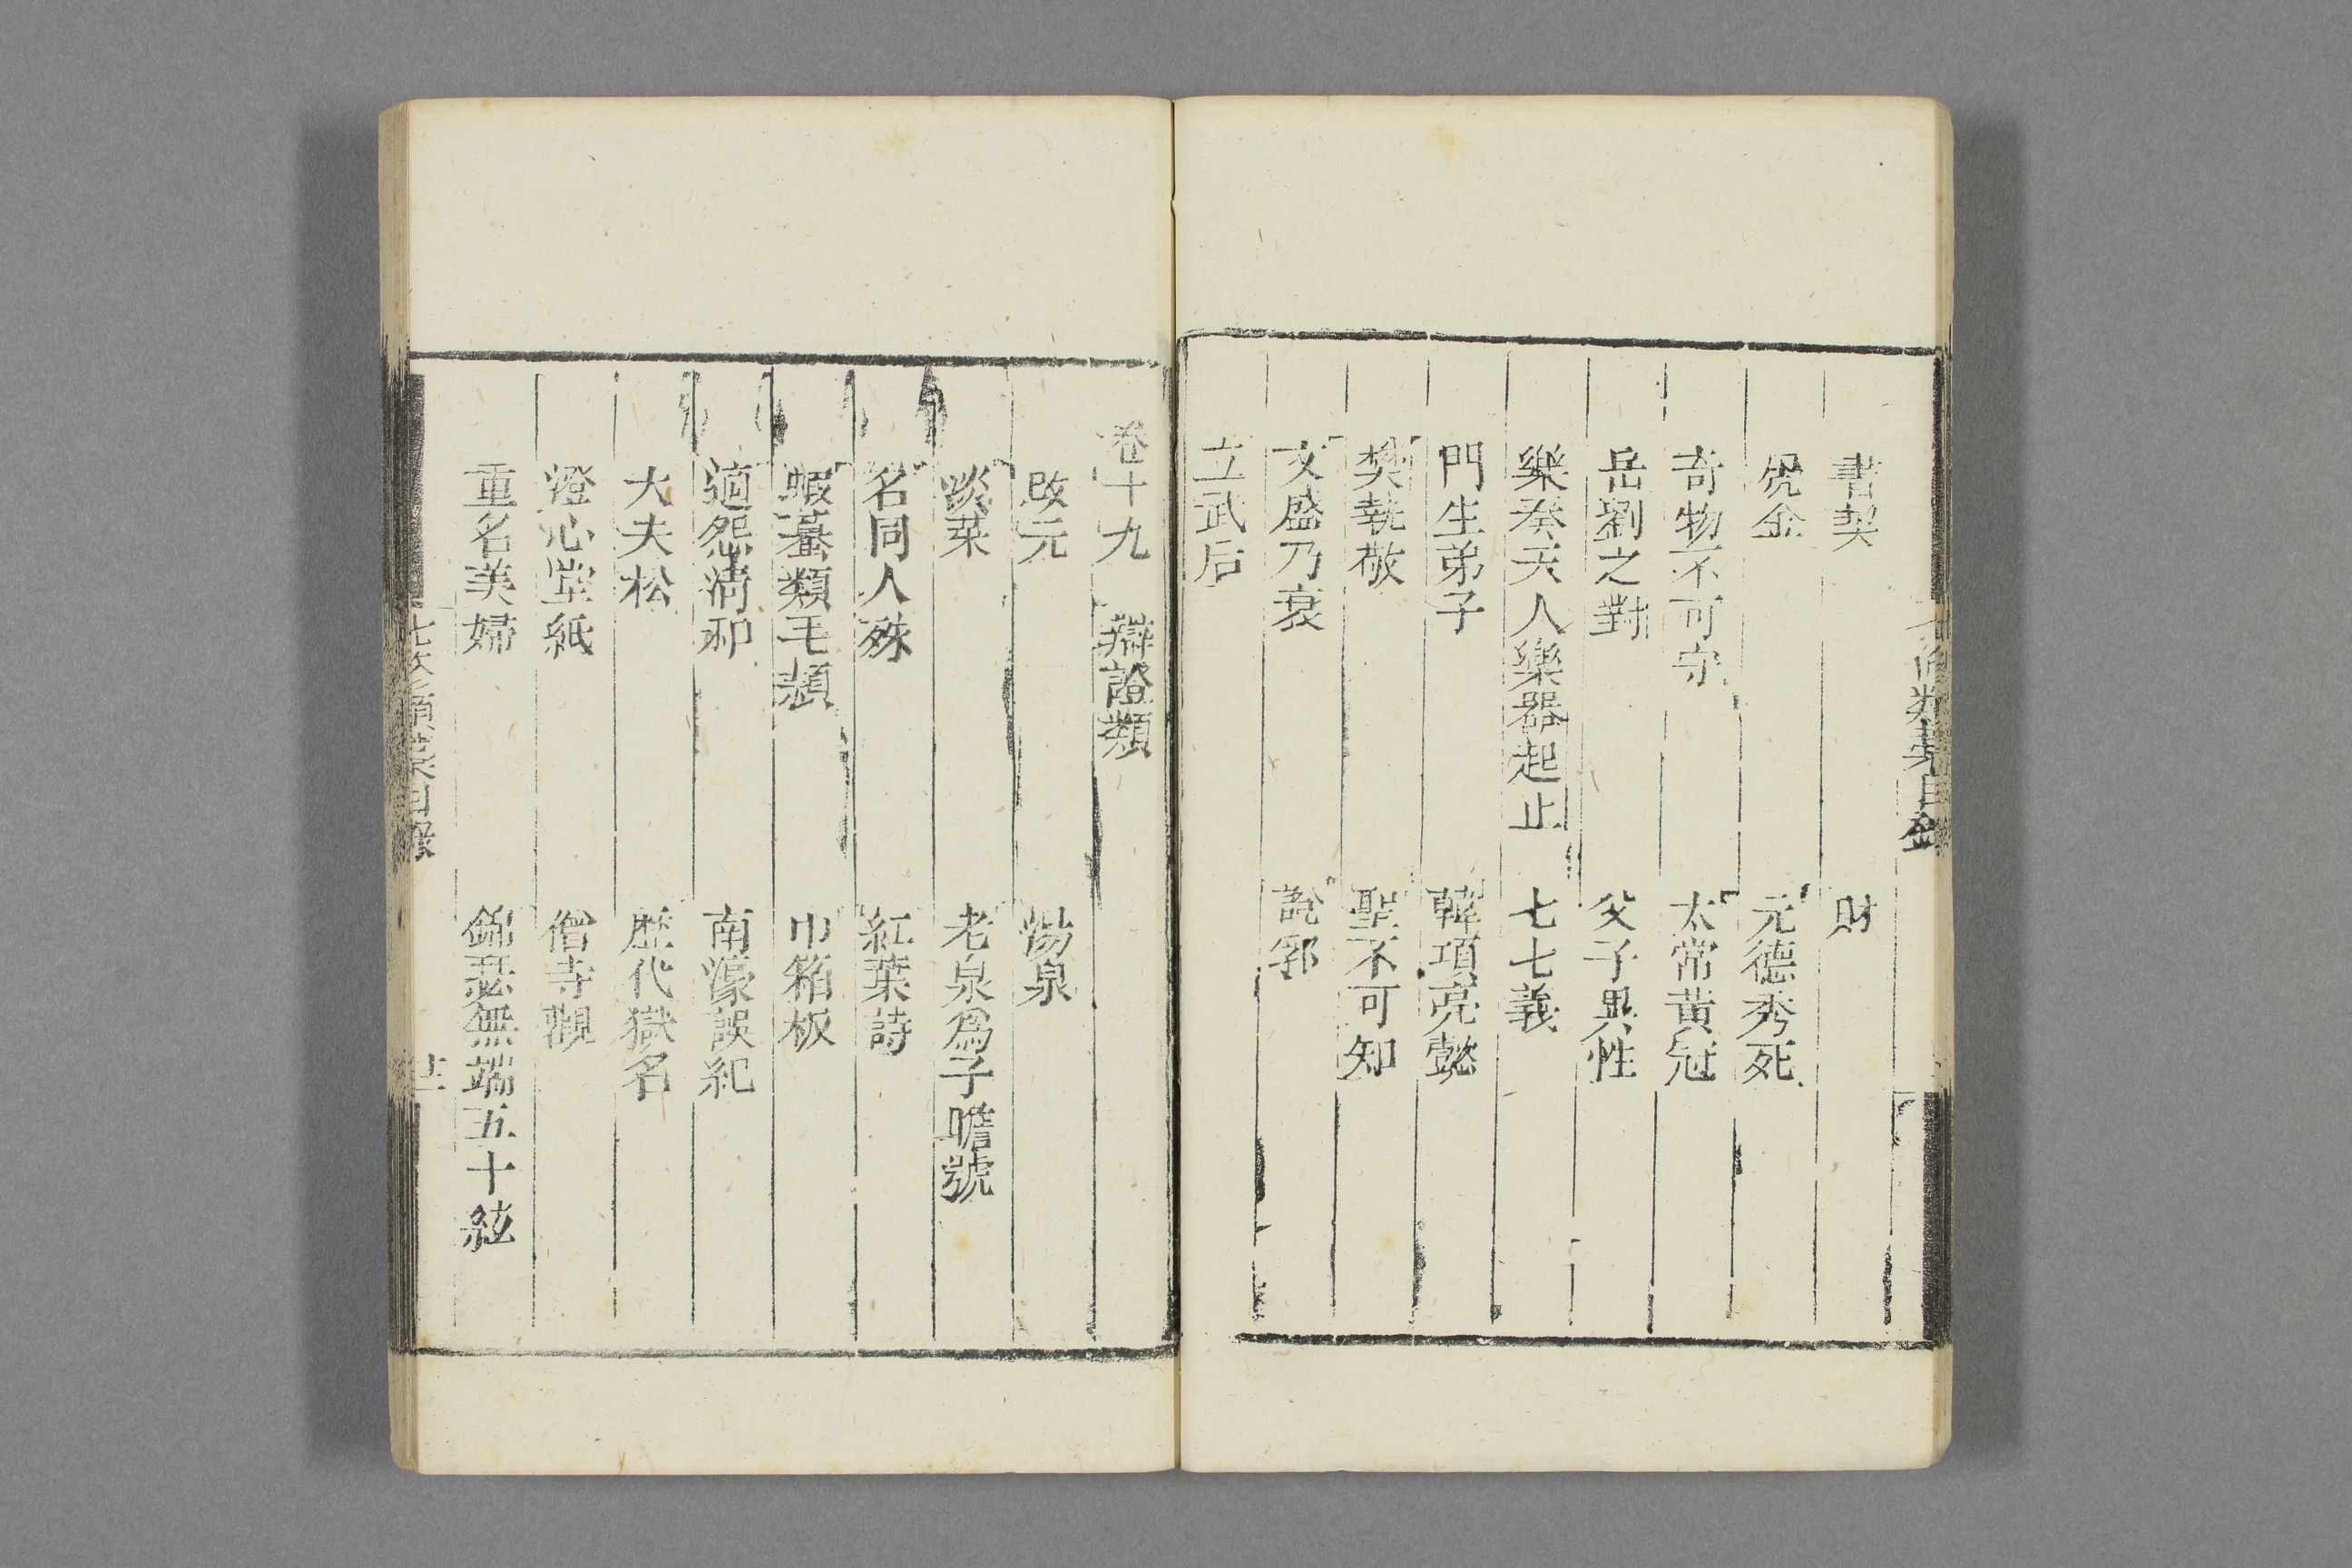 書契　財
虎金　元德秀死
奇物不可守　太常黃冠
岳劉之對　父子異性
樂奏天人樂器起止　七七義
門生弟子　韓項亮懿
樊執敬　聖不可知
文盛乃衰　說郛
立武后
卷十九　辯證類
改元　湯泉
淡菜　老泉爲子瞻號
名同人殊　紅葉詩
蝦蟇類毛頴　巾箱板
適怨清和　南濠誤紀
大夫松　歷代獄名
澄心堂紙　僧寺觀
重名美婦　錦瑟無端五十絃
七修類藁目錄